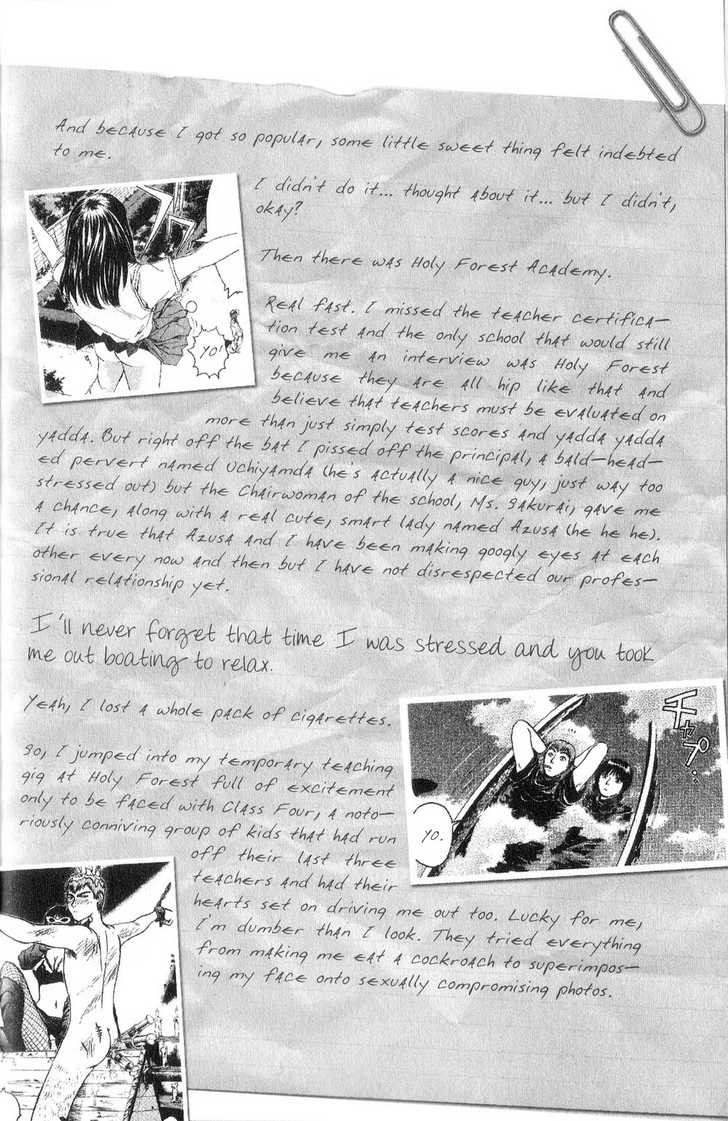 And because I got so popular, some little sweet thing felt indebted
to me.
I didn't do it... thought about it... but I didn't,
okay?
Then there was Holy Forest Academy.
Real fast. I missed the teacher certifica-
tion test and the only school that would still
give me an interview was Holy Forest
because they are all hip like that and
believe that teachers must be evaluated on
more than just simply test scores and yadda yadda
yadda. But right off the bat I pissed off the principal, a bald-head-
ed pervert named Uchiyamda (he's actually a nice guy, just way too
stressed out) but the Chairwoman of the school, Ms. Sakurai, gave me
a chance, along with a real cute, smart lady named Azusa (he he he).
It is true that Azusa and I have been making googly eyes at each
other every now and then but I have not disrespected our profes-
sional relationship yet.
YO!
I'll never forget that time I was stressed and you took
me out boating to relax.
Yeah, I lost a whole pack of cigarettes.
チャプ…
YO.
So, I jumped into my temporary teaching
gig at Holy Forest full of excitement
only to be faced with Class Four, a noto-
riously conniving group of kids that had run
off their last three
teachers and had their
hearts set on driving me out too. Lucky for me,
I'm dumber than I look. They tried everything
from making me eat a cockroach to superimpos-
ing my face onto sexually compromising photos.